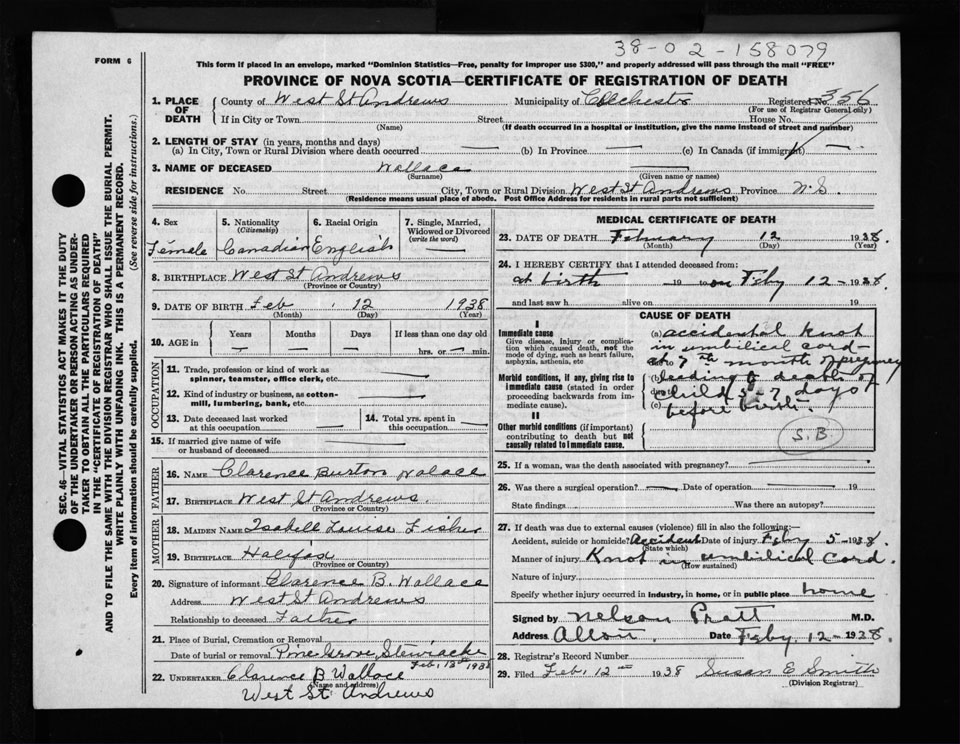 38-02-158079
FORM 6
This form if placed in an envelope, marked "Dominion Statistics—Free, penalty for improper use $300," and properly addressed will pass through the mail "FREE"
PROVINCE OF NOVA SCOTIA—CERTIFICATE OF REGISTRATION OF DEATH
1. PLACE OF DEATH
County of West St Andrews Municipality of Colchester Registered No. 356
(For use of Registrar General only)
If in City or Town Street House No.
(Name) (If death occurred in a hospital or institution, give the name instead of street and number)
2. LENGTH OF STAY (in years, months and days)
(a) In City, Town or Rural Division where death occurred — (b) In Province — (c) In Canada (if immigrant) —
3. NAME OF DECEASED Wallace —
(Surname) (Given name or names)
RESIDENCE No. Street City, Town or Rural Division West St Andrews Province N.S.
(Residence means usual place of abode. Post Office Address for residents in rural parts not sufficient)
SEC. 46—VITAL STATISTICS ACT MAKES IT THE DUTY
OF THE UNDERTAKER OR PERSON ACTING AS UNDER-
TAKER TO OBTAIN ALL THE PARTICULARS REQUIRED
IN THE "CERTIFICATE OF REGISTRATION OF DEATH"
AND TO FILE THE SAME WITH THE DIVISION REGISTRAR WHO SHALL ISSUE THE BURIAL PERMIT.
WRITE PLAINLY WITH UNFADING INK. THIS IS A PERMANENT RECORD.
Every item of information should be carefully supplied. (See reverse side for instructions.)
4. Sex 5. Nationality 6. Racial Origin 7. Single, Married,
(Citizenship) Widowed or Divorced
(write the word)
Female Canadian English —
8. BIRTHPLACE West St Andrews
(Province or Country)
9. DATE OF BIRTH Feb 12 1938
(Month) (Day) (Year)
10. AGE in Years Months Days If less than one day old
— — — hrs. or — min.
OCCUPATION
11. Trade, profession or kind of work as
spinner, teamster, office clerk, etc. —
12. Kind of industry or business, as cotton-
mill, lumbering, bank, etc. —
13. Date deceased last worked at this occupation — 14. Total yrs. spent in this occupation —
15. If married give name of wife
or husband of deceased —
FATHER
16. NAME Clarence Burton Wallace
17. BIRTHPLACE West St Andrews.
(Province or Country)
MOTHER
18. MAIDEN NAME Isabell Louise Fisher
19. BIRTHPLACE Halifax
(Province or Country)
20. Signature of informant Clarence B. Wallace
Address West St Andrews
Relationship to deceased Father
21. Place of Burial, Cremation or Removal
Date of burial or removal Pine Grove, Stewiacke
Feb. 13th 1938
22. UNDERTAKER Clarence B Wallace
(Name and address)
West St Andrews
MEDICAL CERTIFICATE OF DEATH
23. DATE OF DEATH February 12 1938.
(Month) (Day) (Year)
24. I HEREBY CERTIFY that I attended deceased from:
at birth 19 to on Feby 12 - 1938.
and last saw h alive on 19
CAUSE OF DEATH
I
Immediate cause
Give disease, injury or complica-
tion which caused death, not the
mode of dying, such as heart failure,
asphyxia, asthenia, etc
Morbid conditions, if any, giving rise to
immediate cause (stated in order
proceeding backwards from im-
mediate cause).
II
Other morbid conditions (if important)
contributing to death but not
causally related to immediate cause.
(a) accidental knot
in umbilical cord—
at 7th month of pregnancy
(b) leading to death of
child 5-7 days
(c) before birth.
S.B.
25. If a woman, was the death associated with pregnancy? —
26. Was there a surgical operation? — Date of operation — 19
State findings Was there an autopsy?
27. If death was due to external causes (violence) fill in also the following:—
Accident, suicide or homicide? Accident Date of injury Feby 5 - 1938.
(State which)
Manner of injury Knot in umbilical cord.
(How sustained)
Nature of injury
Specify whether injury occurred in industry, in home, or in public place home
Signed by Nelson Pratt M.D.
Address Date Feby. 12 - 1938.
28. Registrar's Record Number
29. Filed Feb. 12th 1938 Susan E Smith
(Division Registrar)